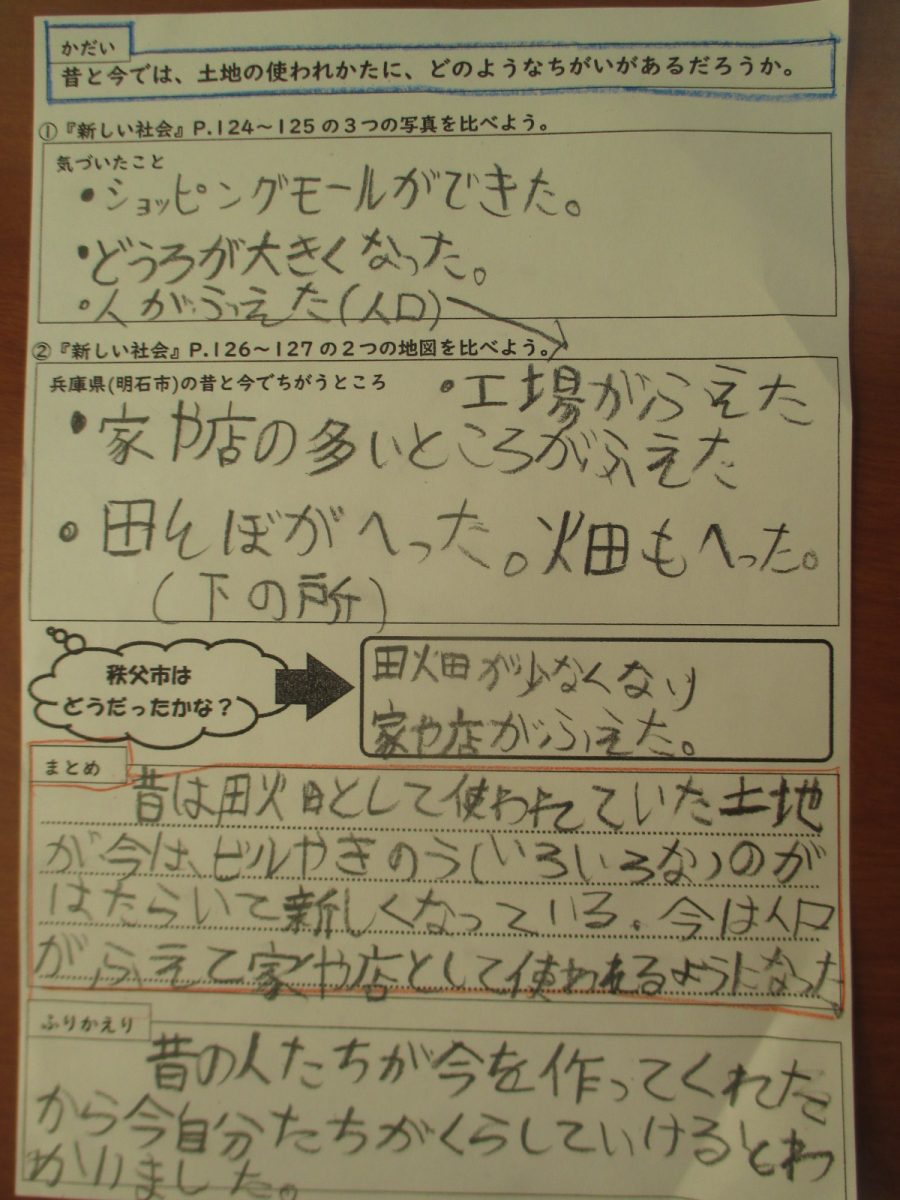 かだい
昔と今では、土地の使われかたに、どのようなちがいがあるだろうか。
①『新しい社会』P.124～125の3つの写真を比べよう。
気づいたこと
・ショッピングモールができた。
・どうろが大きくなった。
・人がふえた(人口)
②『新しい社会』P.126～127の2つの地図を比べよう。
兵庫県(明石市)の昔と今でちがうところ
・工場がふえた
・家や店の多いところがふえた
・田んぼがへった。畑もへった。
(下の所)
秩父市は
どうだったかな？
田畑が少なくなり
家や店がふえた。
まとめ
昔は田畑として使われていた土地
が今は、ビルやきのう(いろいろな)のが
はたらいて新しくなっている。今は人口
がふえて家や店として使われるようになった
ふりかえり
昔の人たちが今を作ってくれた
から今自分たちがくらしていけるとわ
かりました。